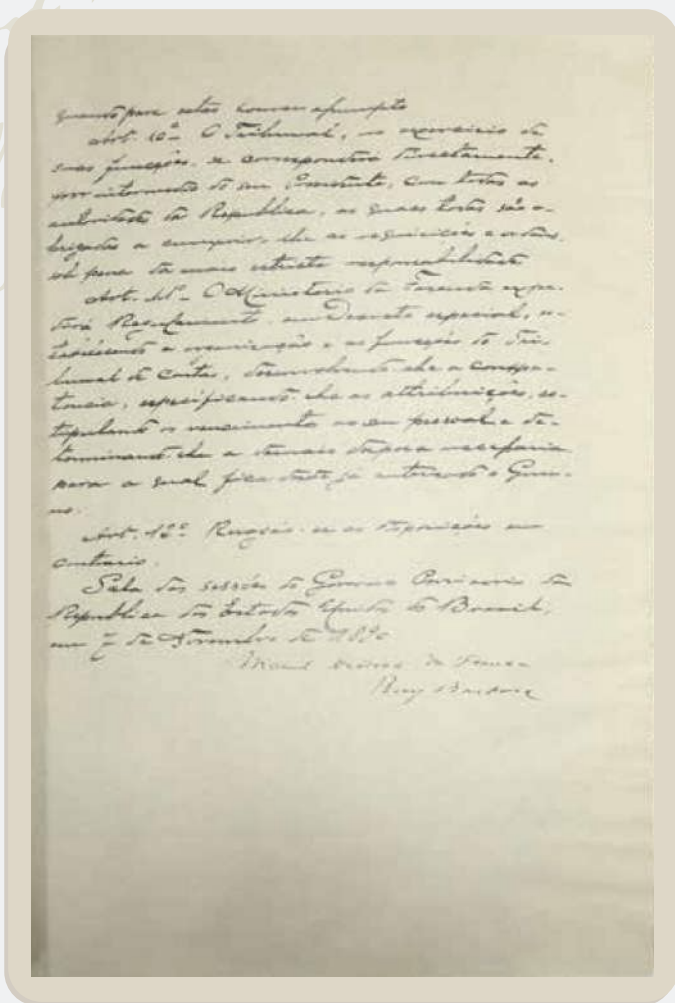 quando para estas houver assumpto
Art. 10º O Tribunal, no exercicio de
suas funcções, se corresponderá directamente,
por intermedio do seu Presidente, com todas as
autoridades da Republica, as quaes todas são o-
brigadas a cumprir-lhe as requisições e ordens,
sob pena da mais estricta responsabilidade
Art. 11º O Ministerio da Fazenda expe-
dirá Regulamento, em Decreto especial, es-
tabelecendo a organização e as funcções do Tri-
bunal de Contas, desenvolvendo-lhe a compe-
tencia, especificando-lhe as attribuições, es-
tipulando os vencimentos ao seu pessoal e de-
terminando-lhe a demais despesa necessaria
para a qual fica desde já autorizado o Gover-
no.
Art. 12º Revogão-se as disposições em
contrario.
Sala das sessões do Governo Provisorio da
Republica dos Estados Unidos do Brazil,
em 7 de Novembro de 1890
Manoel Deodoro da Fonseca
Ruy Barbosa